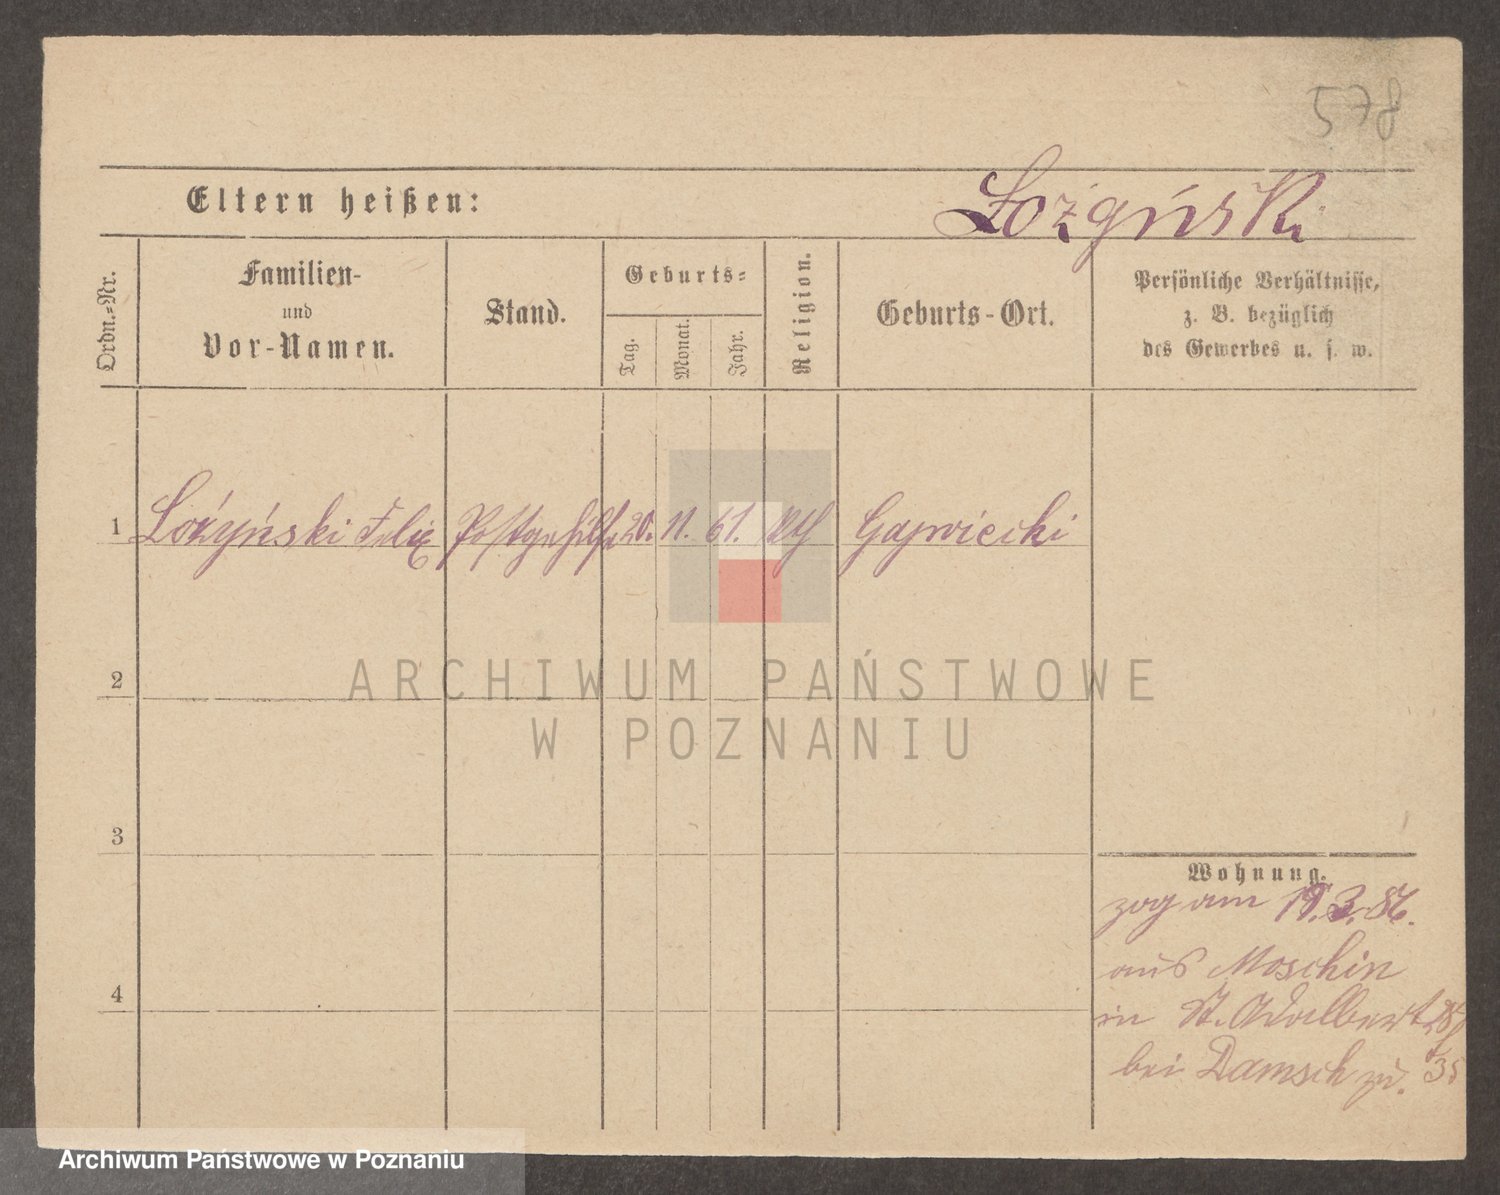 578
Eltern heißen:
Łożyński
Ordn.-Nr.
Familien-
und
Vor-Namen.
Stand.
Geburts-
Tag.
Monat.
Jahr.
Religion.
Geburts-Ort.
Persönliche Verhältnisse,
z. B. bezüglich
des Gewerbes u. s. w.
1 Łożyński Felix Postgehilfe 20. 11. 61. Kth Gajwiecki
2
3
4
Wohnung.
zog am 19.3.86.
aus Moschin
in St. Adalbert
bei Damsch zu. 35
ARCHIWUM PAŃSTWOWE
W POZNANIU
Archiwum Państwowe w Poznaniu